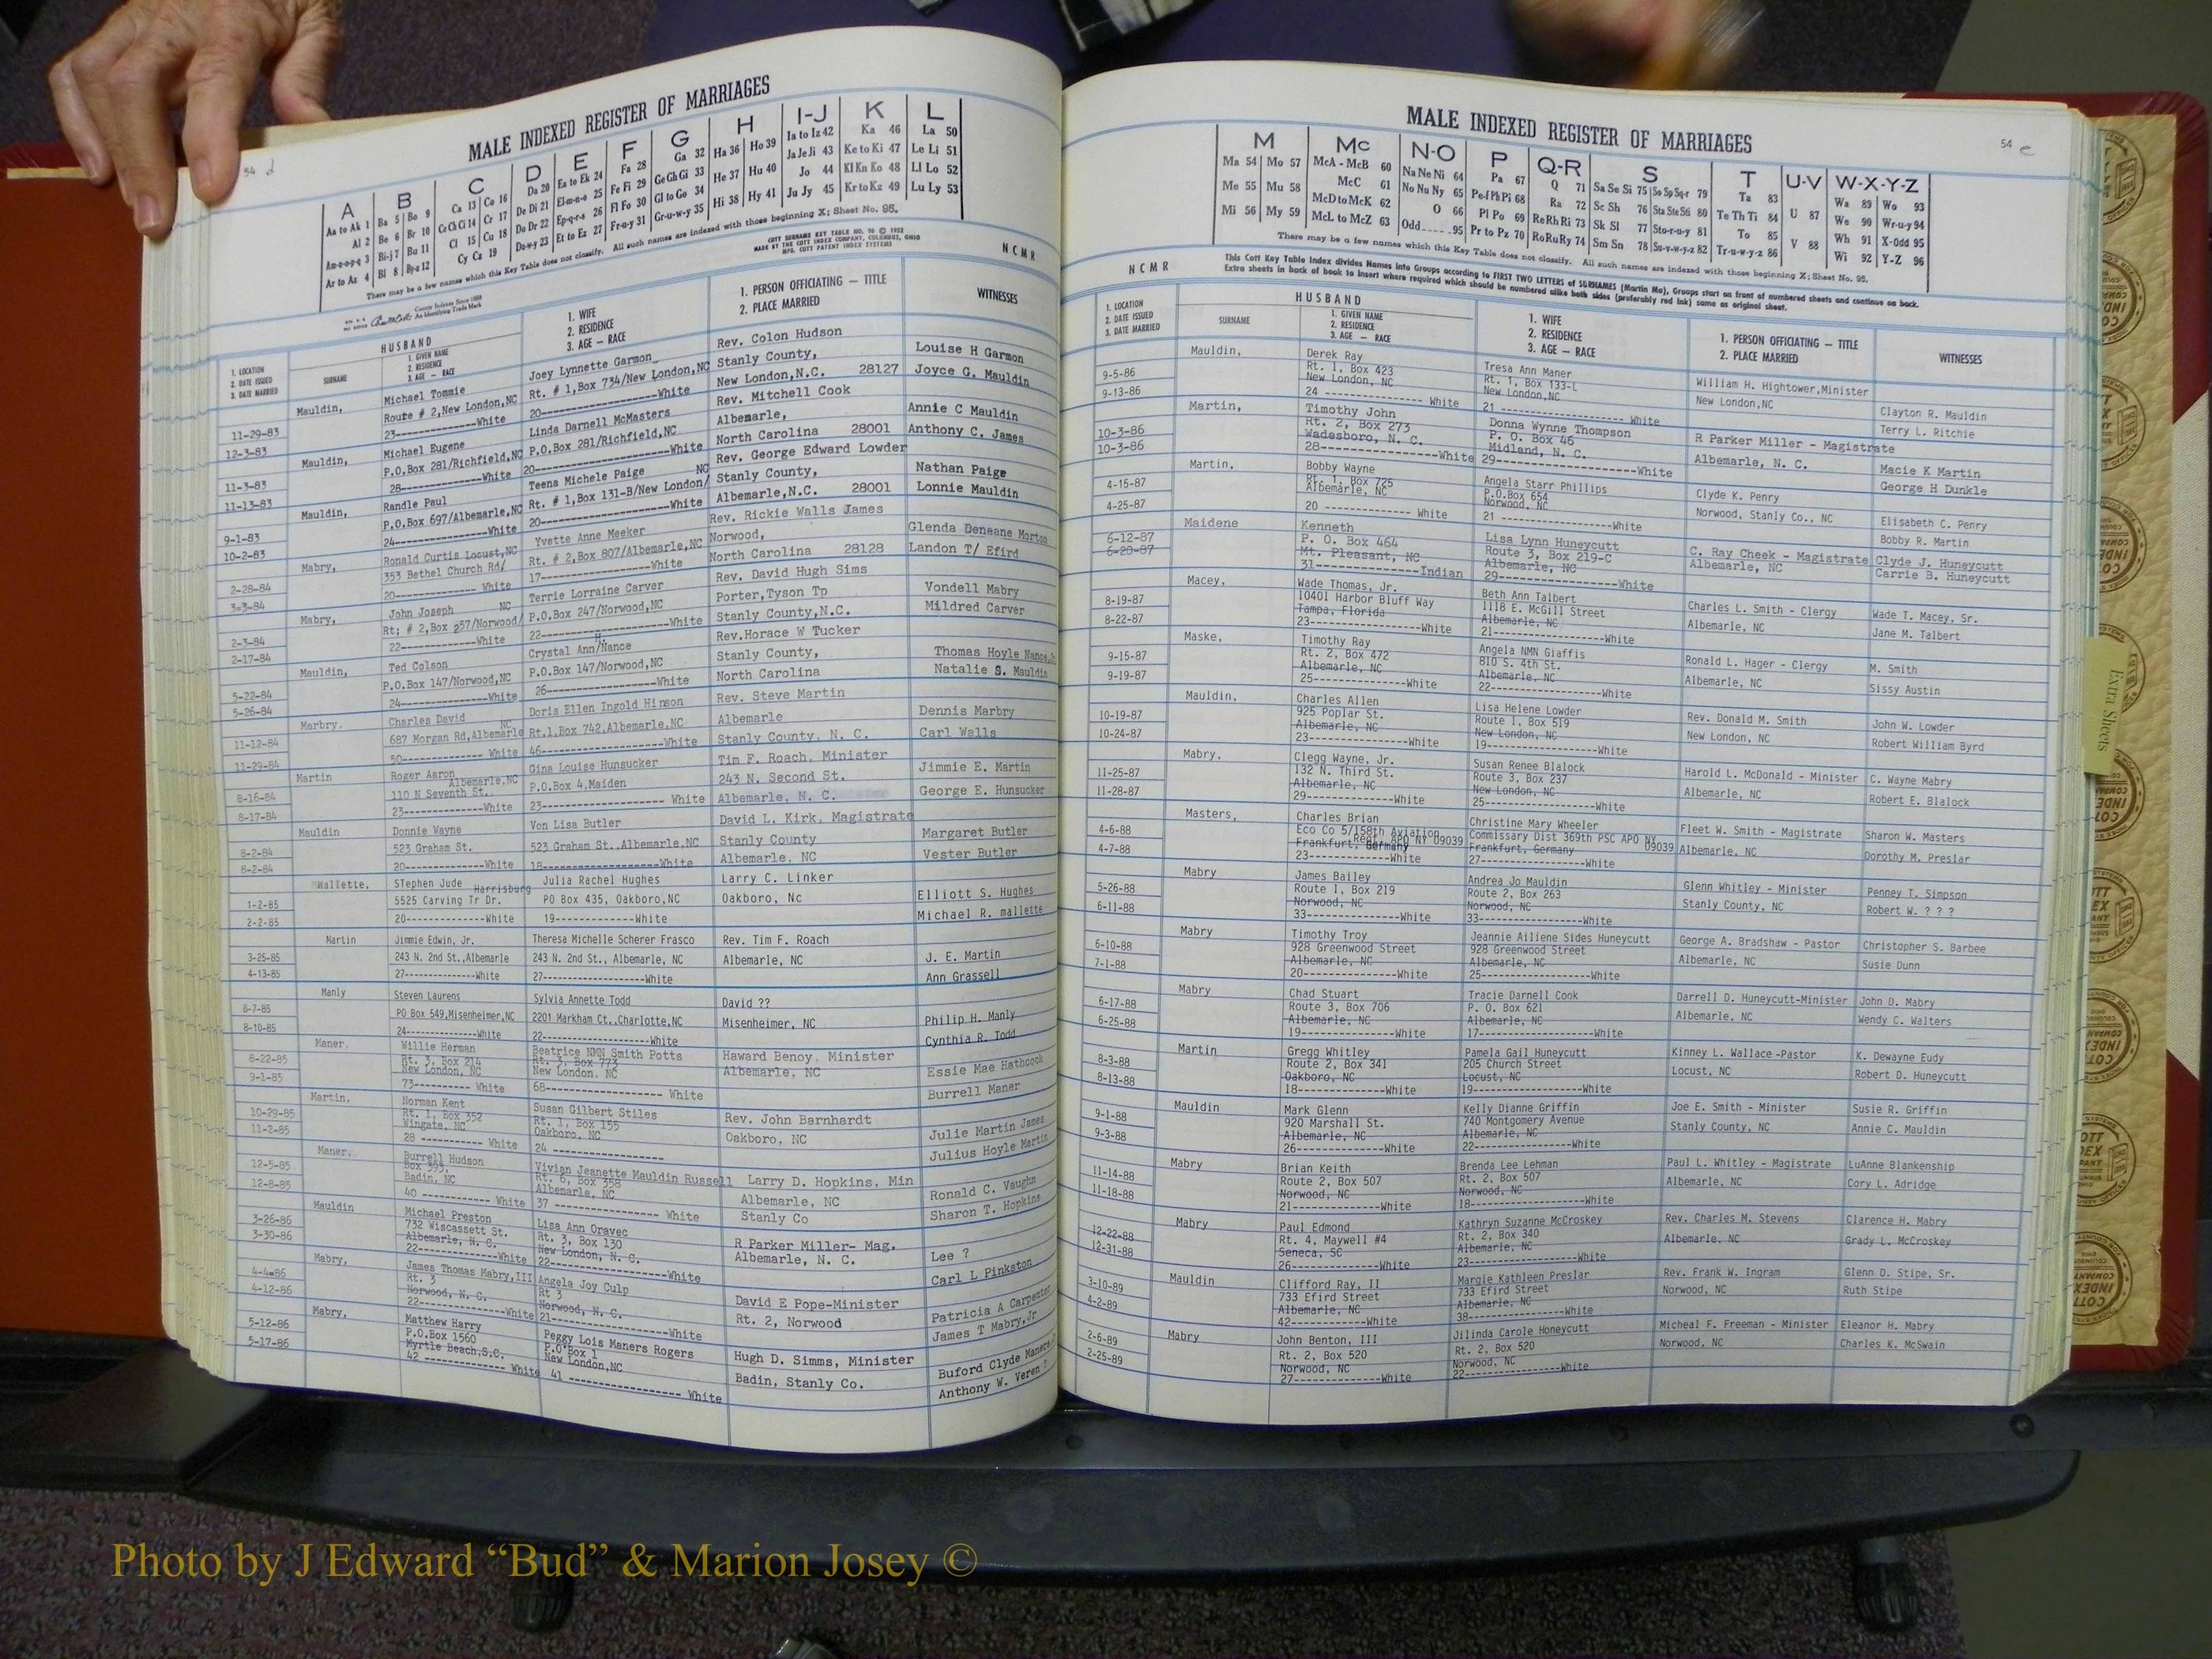 54 d
MALE INDEXED REGISTER OF MARRIAGES
A B C D E F G H I-J K L
Aa to Ak 1 Ba 5 Bo 9 Ca 13 Co 16 Da 20 Ea to Ek 24 Fa 28 Ga 32 Ha 36 Ho 39 Ia to Iz 42 Ka 46 La 50
Al 2 Be 6 Br 10 Ce Ch Ci 14 Cr 17 De Di 21 El-m-n-o 25 Fe Fi 29 Ge Gh Gi 33 He 37 Hu 40 Ja Je Ji 43 Ke to Ki 47 Le Li 51
Am-n-o-p-q 3 Bi-j 7 Bu 11 Cl 15 Cu 18 Do Dr 22 Ep-q-r-s 26 Fl Fo 30 Gl to Go 34 Hi 38 Hy 41 Jo 44 Kl Kn Ko 48 Ll Lo 52
Ar to Az 4 Bl 8 By-z 12 Cy Cz 19 Du-w-y 23 Et to Ez 27 Fr-u-y 31 Gr-u-w-y 35 Ju Jy 45 Kr to Kz 49 Lu Ly 53
There may be a few names which this Key Table does not classify. All such names are indexed with those beginning X; Sheet No. 95.
COTT SURNAME KEY TABLE NO. 96 © 1952
MADE BY THE COTT INDEX COMPANY, COLUMBUS, OHIO
MFG. COTT PATENT INDEX SYSTEMS
County Indexes Since 1888
An Identifying Trade Mark
NCMR
1. LOCATION
2. DATE ISSUED
3. DATE MARRIED
HUSBAND
SURNAME
1. GIVEN NAME
2. RESIDENCE
3. AGE — RACE
1. WIFE
2. RESIDENCE
3. AGE — RACE
1. PERSON OFFICIATING — TITLE
2. PLACE MARRIED
WITNESSES
Mauldin, Michael Tommie Joey Lynnette Garmon Rev. Colon Hudson Louise H Garmon
11-29-83 Route # 2,New London,NC Rt. # 1,Box 734/New London,NC Stanly County, Joyce G. Mauldin
12-3-83 23-----------White 20-----------White New London,N.C. 28127
Mauldin, Michael Eugene Linda Darnell McMasters Rev. Mitchell Cook Annie C Mauldin
11-3-83 P.O.Box 281/Richfield,NC P.O.Box 281/Richfield,NC Albemarle, Anthony C. James
11-13-83 28-----------White 20-----------White North Carolina 28001
Mauldin, Randle Paul Teena Michele Paige NC Rev. George Edward Lowder Nathan Paige
9-1-83 P.O.Box 697/Albemarle,NC Rt. # 1,Box 131-B/New London/ Stanly County, Lonnie Mauldin
10-2-83 24-----------White 20-----------White Albemarle,N.C. 28001
Mabry, Ronald Curtis Locust,NC Yvette Anne Meeker Rev. Rickie Walls James Glenda Deneane Morton
2-28-84 353 Bethel Church Rd/ Rt. # 2,Box 807/Albemarle,NC Norwood, Landon T/ Efird
3-3-84 20----------- White 17-----------White North Carolina 28128
Mabry, John Joseph NC Terrie Lorraine Carver Rev. David Hugh Sims Vondell Mabry
2-3-84 Rt; # 2,Box 257/Norwood/ P.O.Box 247/Norwood,NC Porter,Tyson Tp Mildred Carver
2-17-84 22-----------White 22-----------White Stanly County,N.C.
Mauldin, Ted Colson Crystal Ann/Nance H. Rev.Horace W Tucker Thomas Hoyle Nance,Jr
5-22-84 P.O.Box 147/Norwood,NC P.O.Box 147/Norwood,NC Stanly County, Natalie S. Mauldin
5-26-84 24-----------White 26-----------White North Carolina
Marbry, Charles David NC Doris Ellen Ingold Hinson Rev. Steve Martin Dennis Marbry
11-12-84 687 Morgan Rd,Albemarle Rt.1,Box 742,Albemarle,NC Albemarle Carl Walls
11-29-84 50----------- White 46-----------White Stanly County, N. C.
Martin Roger Aaron Albemarle,NC Gina Louise Hunsucker Tim F. Roach, Minister Jimmie E. Martin
8-16-84 110 N Seventh St., P.O.Box 4,Maiden 243 N. Second St. George E. Hunsucker
8-17-84 23-----------White 23----------- White Albemarle, N. C.
Mauldin Donnie Wayne Von Lisa Butler David L. Kirk, Magistrate Margaret Butler
8-2-84 523 Graham St. 523 Graham St.,Albemarle,NC Stanly County Vester Butler
8-2-84 20-----------White 18-----------White Albemarle, NC
Mallette, STephen Jude Harrisburg Julia Rachel Hughes Larry C. Linker Elliott S. Hughes
1-2-85 5525 Carving Tr Dr. PO Box 435, Oakboro,NC Oakboro, Nc Michael R. mallette
2-2-85 20-----------White 19-----------White
Martin Jimmie Edwin, Jr. Theresa Michelle Scherer Frasco Rev. Tim F. Roach J. E. Martin
3-25-85 243 N. 2nd St.,Albemarle 243 N. 2nd St., Albemarle, NC Albemarle, NC Ann Grassell
4-13-85 27-----------White 27-----------White
Manly Steven Laurens Sylvia Annette Todd David ?? Philip H. Manly
8-7-85 PO Box 549,Misenheimer,NC 2201 Markham Ct.,Charlotte,NC Misenheimer, NC Cynthia R. Todd
8-10-85 24-----------White 22-----------White
Maner, Willie Herman Beatrice NMN Smith Potts Haward Benoy, Minister Essie Mae Hathcock
8-22-85 Rt. 3, Box 214 Rt. 3, Box 773 Albemarle, NC Burrell Maner
9-1-85 New London, NC New London, NC
73---------- White 68----------- White
Martin, Norman Kent Susan Gilbert Stiles Rev. John Barnhardt Julie Martin James
10-29-85 Rt. 1, Box 352 Rt. 1, Box 155 Oakboro, NC Julius Hoyle Martin
11-2-85 Wingate, NC Oakboro, NC
28 ----------- White 24 -----------
Maner, Burrell Hudson Vivian Jeanette Mauldin Russell Larry D. Hopkins, Min Ronald C. Vaughn
12-5-85 Box 393, Rt. 6, Box 358 Albemarle, NC Sharon T. Hopkins
12-8-85 Badin, NC Albemarle, NC Stanly Co
40 ----------- White 37 ----------- White
Mauldin Michael Preston Lisa Ann Oravec R Parker Miller- Mag. Lee ?
3-26-86 732 Wiscassett St. Rt. 3, Box 130 Albemarle, N. C. Carl L Pinkston
3-30-86 Albemarle, N. C. New London, N. C.
22-----------White 22-----------White
Mabry, James Thomas Mabry,III Angela Joy Culp David E Pope-Minister Patricia A Carpenter
4-4-86 Rt. 3 Rt 3 Rt. 2, Norwood James T Mabry,Jr
4-12-86 Norwood, N. C. Norwood, N. C.
22-----------White 21-----------White
Mabry, Matthew Harry Peggy Lois Maners Rogers Hugh D. Simms, Minister Buford Clyde Maners,
5-12-86 P.O.Box 1560 P.O Box 1 Badin, Stanly Co. Anthony W. Veren ?
5-17-86 Myrtle Beach,S.C. New London,NC
42 ----------- White 41 ----------- White
54 e
MALE INDEXED REGISTER OF MARRIAGES
M Mc N-O P Q-R S T U-V W-X-Y-Z
Ma 54 Mo 57 McA - McB 60 Na Ne Ni 64 Pa 67 Q 71 Sa Se Si 75 So Sp Sq-r 79 Ta 83 Wa 89 Wo 93
Me 55 Mu 58 McC 61 No Nu Ny 65 Pe-f Ph Pi 68 Ra 72 Sc Sh 76 Sta Ste Sti 80 Te Th Ti 84 U 87 We 90 Wr-u-y 94
Mi 56 My 59 McD to McK 62 O 66 Pl Po 69 Re Rh Ri 73 Sk Sl 77 Sto-r-u-y 81 To 85 Wh 91 X-Odd 95
McL to McZ 63 Odd.....95 Pr to Pz 70 Ro Ru Ry 74 Sm Sn 78 Su-v-w-y-z 82 Tr-u-w-y-z 86 V 88 Wi 92 Y-Z 96
There may be a few names which this Key Table does not classify. All such names are indexed with those beginning X; Sheet No. 95.
This Cott Key Table Index divides Names into Groups according to FIRST TWO LETTERS of SURNAMES (Martin Ma), Groups start on front of numbered sheets and continue on back.
Extra sheets in back of book to insert where required which should be numbered alike both sides (preferably red ink) same as original sheet.
NCMR
1. LOCATION
2. DATE ISSUED
3. DATE MARRIED
HUSBAND
SURNAME
1. GIVEN NAME
2. RESIDENCE
3. AGE — RACE
1. WIFE
2. RESIDENCE
3. AGE — RACE
1. PERSON OFFICIATING — TITLE
2. PLACE MARRIED
WITNESSES
Mauldin, Derek Ray Tresa Ann Maner William H. Hightower,Minister Clayton R. Mauldin
9-5-86 Rt. 1, Box 423 Rt. 1, Box 133-L New London,NC Terry L. Ritchie
9-13-86 New London, NC New London,NC
24 ----------- White 21 ----------- White
Martin, Timothy John Donna Wynne Thompson R Parker Miller - Magistrate Macie K Martin
10-3-86 Rt. 2, Box 273 P. O. Box 46 Albemarle, N. C. George H Dunkle
10-3-86 Wadesboro, N. C. Midland, N. C.
28-----------White 29-----------White
Martin, Bobby Wayne Angela Starr Phillips Clyde K. Penry Elisabeth C. Penry
4-15-87 Rt. 1, Box 725 P.O.Box 654 Norwood, Stanly Co., NC Bobby R. Martin
4-25-87 Albemarle, NC Norwood, NC
20 ----------- White 21 -----------White
Maidene Kenneth Lisa Lynn Huneycutt C. Ray Cheek - Magistrate Clyde J. Huneycutt
6-12-87 P. O. Box 464 Route 3, Box 219-C Albemarle, NC Carrie B. Huneycutt
6-20-87 Mt. Pleasant, NC Albemarle, NC
31-----------Indian 29-----------White
Macey, Wade Thomas, Jr. Beth Ann Talbert Charles L. Smith - Clergy Wade T. Macey, Sr.
8-19-87 10401 Harbor Bluff Way 1118 E. McGill Street Albemarle, NC Jane M. Talbert
8-22-87 Tampa, Florida Albemarle, NC
23-----------White 21-----------White
Maske, Timothy Ray Angela NMN Giaffis Ronald L. Hager - Clergy M. Smith
9-15-87 Rt. 2, Box 472 810 S. 4th St. Albemarle, NC Sissy Austin
9-19-87 Albemarle, NC Albemarle, NC
25-----------White 22-----------White
Mauldin, Charles Allen Lisa Helene Lowder Rev. Donald M. Smith John W. Lowder
10-19-87 925 Poplar St. Route 1, Box 519 New London, NC Robert William Byrd
10-24-87 Albemarle, NC New London, NC
23-----------White 19-----------White
Mabry, Clegg Wayne, Jr. Susan Renee Blalock Harold L. McDonald - Minister C. Wayne Mabry
11-25-87 132 N. Third St. Route 3, Box 237 Albemarle, NC Robert E. Blalock
11-28-87 Albemarle, NC New London, NC
29-----------White 25-----------White
Masters, Charles Brian Christine Mary Wheeler Fleet W. Smith - Magistrate Sharon W. Masters
4-6-88 Eco Co 5/158th Aviation Regt. APO NY 09039 Commissary Dist 369th PSC APO NY 09039 Albemarle, NC Dorothy M. Preslar
4-7-88 Frankfurt, Germany Frankfurt, Germany
23-----------White 27-----------White
Mabry James Bailey Andrea Jo Mauldin Glenn Whitley - Minister Penney T. Simpson
5-26-88 Route 1, Box 219 Route 2, Box 263 Stanly County, NC Robert W. ? ? ?
6-11-88 Norwood, NC Norwood, NC
33-----------White 33-----------White
Mabry Timothy Troy Jeannie Ailiene Sides Huneycutt George A. Bradshaw - Pastor Christopher S. Barbee
6-10-88 928 Greenwood Street 928 Greenwood Street Albemarle, NC Susie Dunn
7-1-88 Albemarle, NC Albemarle, NC
20-----------White 25-----------White
Mabry Chad Stuart Tracie Darnell Cook Darrell D. Huneycutt-Minister John D. Mabry
6-17-88 Route 3, Box 706 P. O. Box 621 Albemarle, NC Wendy C. Walters
6-25-88 Albemarle, NC Albemarle, NC
19-----------White 17-----------White
Martin Gregg Whitley Pamela Gail Huneycutt Kinney L. Wallace -Pastor K. Dewayne Eudy
8-3-88 Route 2, Box 341 205 Church Street Locust, NC Robert D. Huneycutt
8-13-88 Oakboro, NC Locust, NC
18-----------White 19-----------White
Mauldin Mark Glenn Kelly Dianne Griffin Joe E. Smith - Minister Susie R. Griffin
9-1-88 920 Marshall St. 740 Montgomery Avenue Stanly County, NC Annie C. Mauldin
9-3-88 Albemarle, NC Albemarle, NC
26-----------White 22-----------White
Mabry Brian Keith Brenda Lee Lehman Paul L. Whitley - Magistrate LuAnne Blankenship
11-14-88 Route 2, Box 507 Rt. 2, Box 507 Albemarle, NC Cory L. Adridge
11-18-88 Norwood, NC Norwood, NC
21-----------White 18-----------White
Mabry Paul Edmond Kathryn Suzanne McCroskey Rev. Charles M. Stevens Clarence H. Mabry
12-22-88 Rt. 4, Maywell #4 Rt. 2, Box 340 Albemarle, NC Grady L. McCroskey
12-31-88 Seneca, SC Albemarle, NC
26-----------White 23-----------White
Mauldin Clifford Ray, II Margie Kathleen Preslar Rev. Frank W. Ingram Glenn D. Stipe, Sr.
3-10-89 733 Efird Street 733 Efird Street Norwood, NC Ruth Stipe
4-2-89 Albemarle, NC Albemarle, NC
42-----------White 38-----------White
Mabry John Benton, III Jilinda Carole Honeycutt Micheal F. Freeman - Minister Eleanor H. Mabry
2-6-89 Rt. 2, Box 520 Rt. 2, Box 520 Norwood, NC Charles K. McSwain
2-25-89 Norwood, NC Norwood, NC
27-----------White 22-----------White
Extra Sheets
Photo by J Edward “Bud” & Marion Josey ©